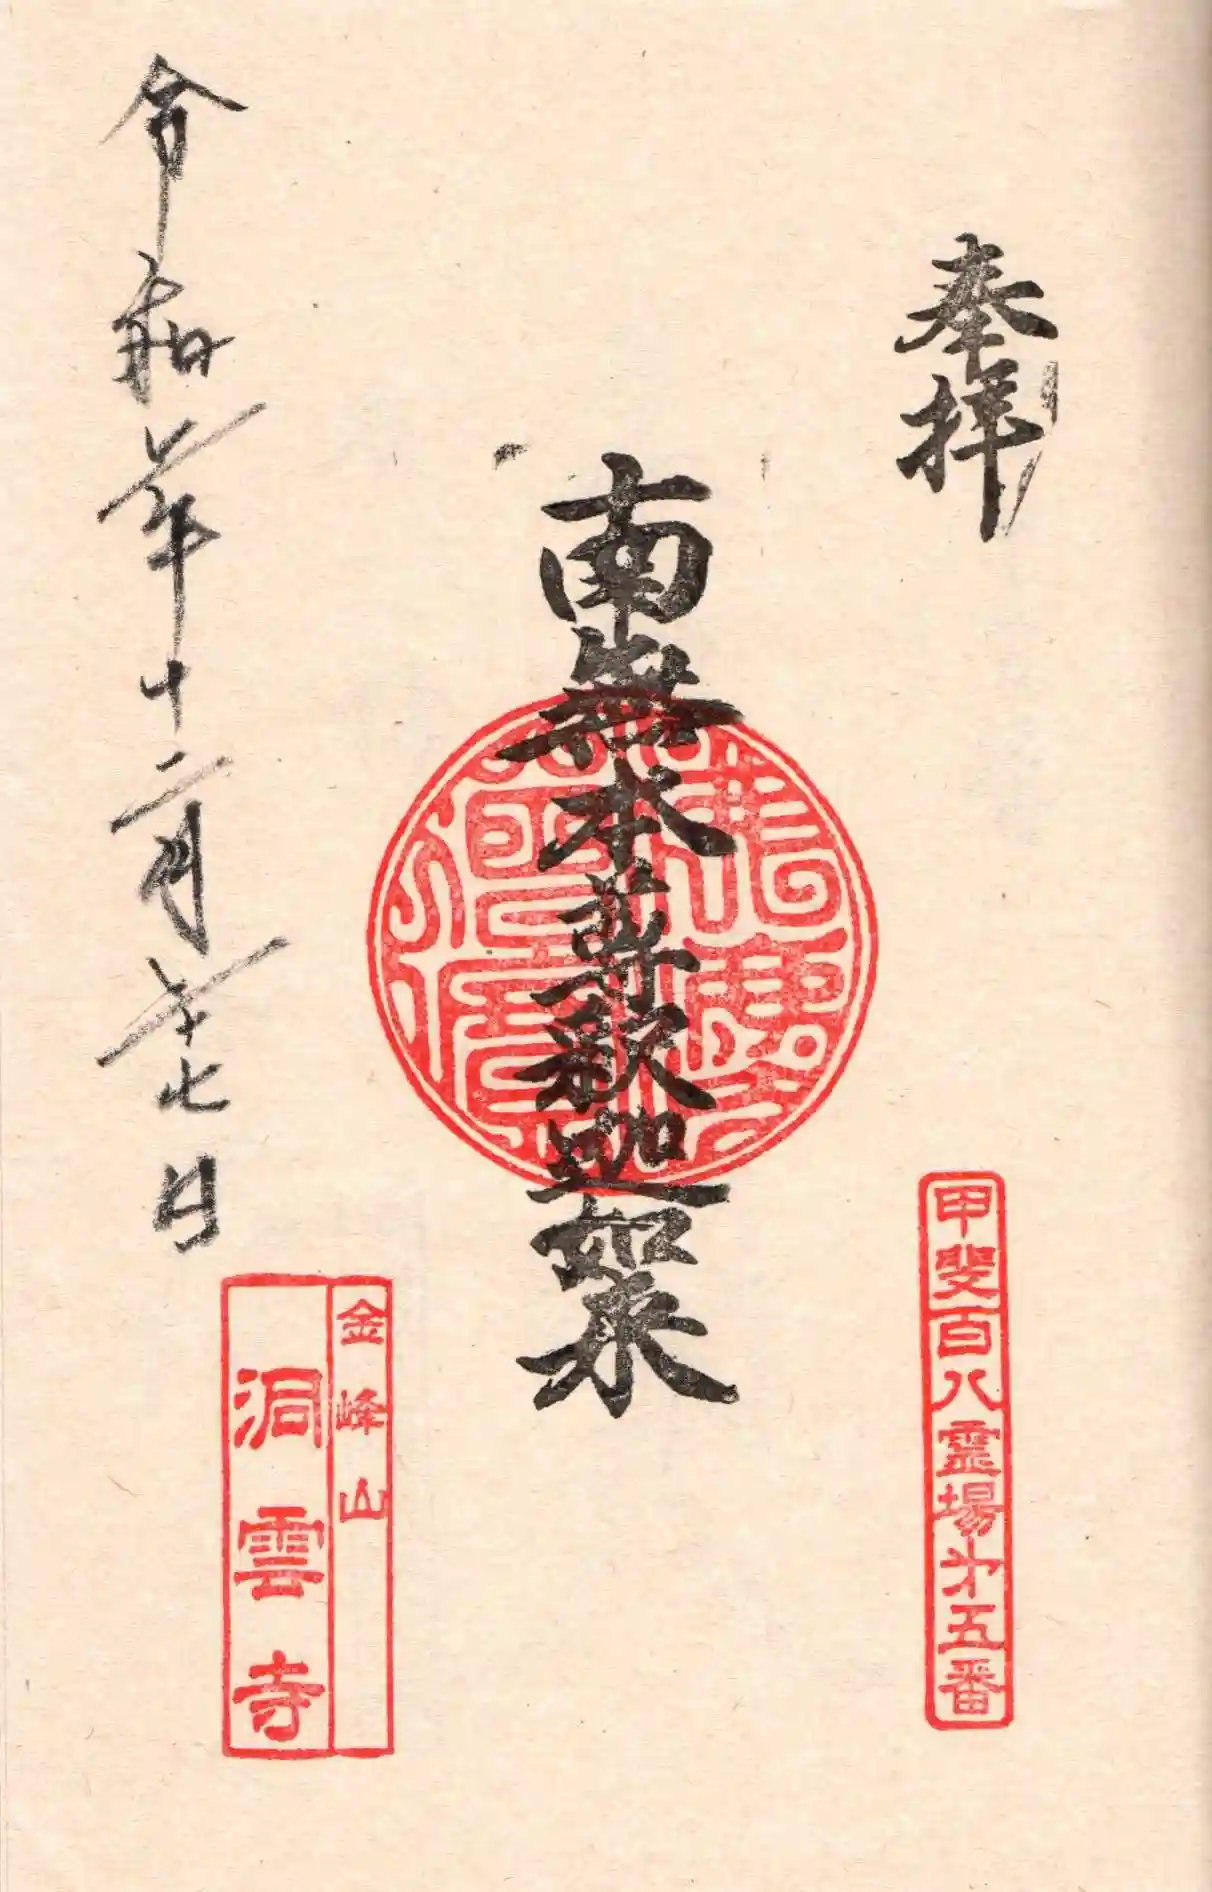 奉拝
甲斐百八霊場第五番
南無本尊釈迦如来
金峰山
洞雲寺
令和 年十二月 七日